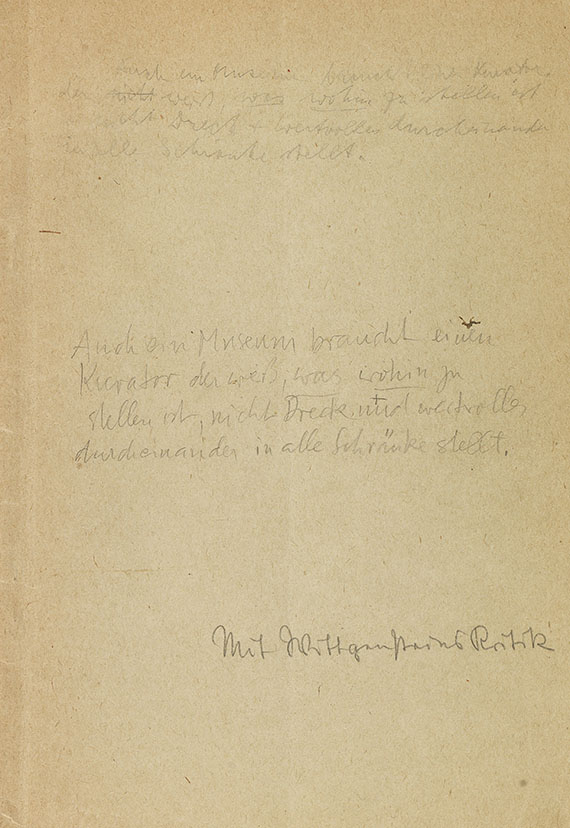 Auch ein Museum braucht einen Kurator
der nicht weiß, was wohin zu stellen ist
nicht Dreck + wertvolles durcheinander
in alle Schränke stellt.
Auch ein Museum braucht einen
Kurator der weiß, was wohin zu
stellen ist, nicht Dreck und wertvolles
durcheinander in alle Schränke stellt.
Mit Wittgensteins Kritik